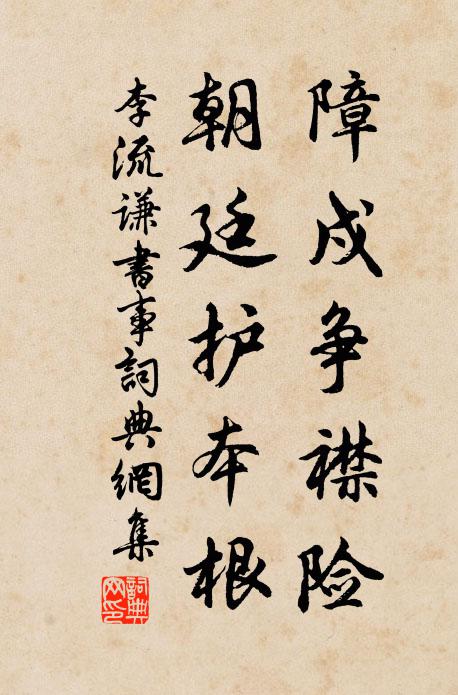 障戍争襟险
朝廷护本根
李流谦书事詞典網集
詞典網印